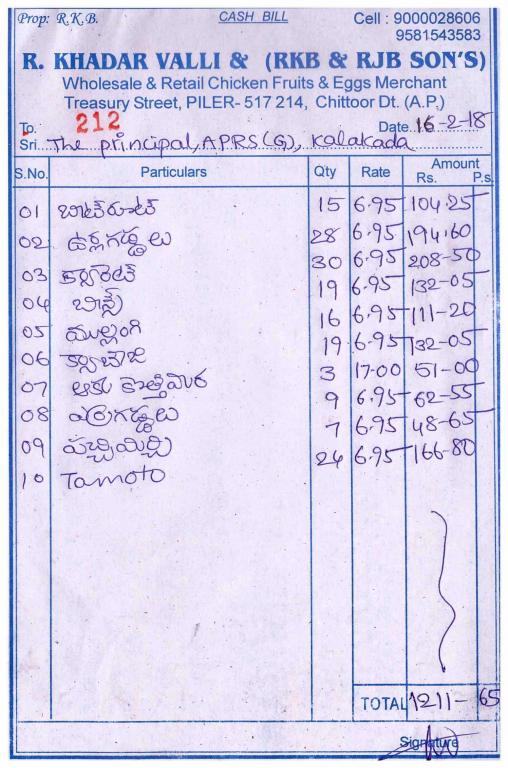 Prop: R.K.B. CASH BILL Cell : 9000028606
9581543583
R. KHADAR VALLI & (RKB & RJB SON'S)
Wholesale & Retail Chicken Fruits & Eggs Merchant
Treasury Street, PILER- 517 214, Chittoor Dt. (A.P.)
To. 212 Date. 16-2-18
Sri. The principal, APRS(G), Kalakada
S.No. Particulars Qty Rate Amount
Rs. P.s.
01 బీట్‌రూట్ 15 6.95 104.25
02 ఉర్లగడ్డలు 28 6.95 194.60
03 క్యారెట్ 30 6.95 208-50
04 బీన్స్ 19 6.95 132-05
05 ముల్లంగి 16 6.95 111-20
06 క్యాబేజి 19 6.95 132-05
07 ఆకు కొత్తిమిర 3 17.00 51-00
08 ఎర్రగడ్డలు 9 6.95 62-55
09 పచ్చిమిర్చి 7 6.95 48-65
10 Tamoto 24 6.95 166-80
TOTAL 1211-65
Signature